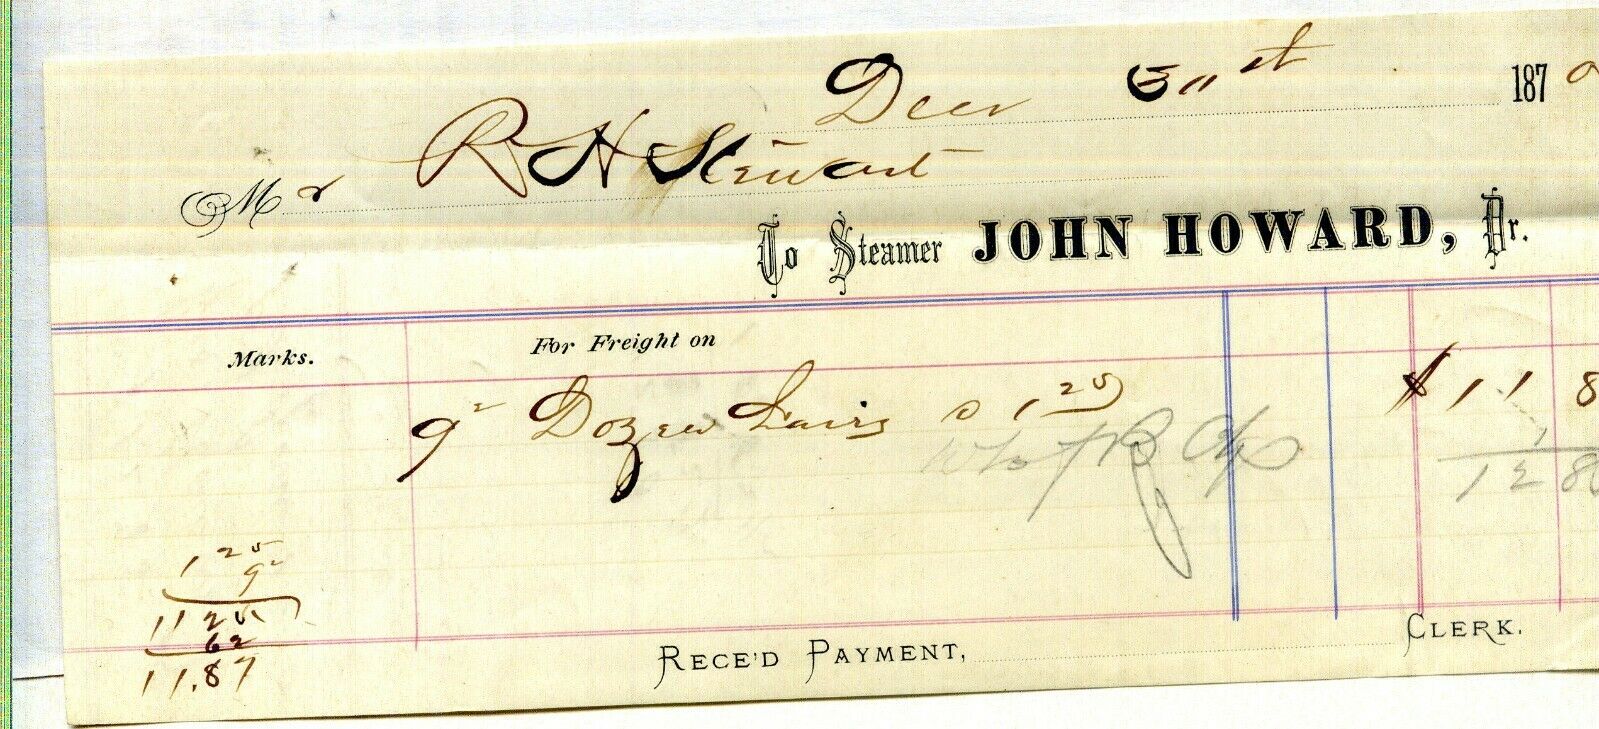 Decr 31st 1870
Mr R H Stewart
To Steamer JOHN HOWARD, Dr.
Marks. For Freight on
9 2 Dozen Pairs @ 1 25 $ 11 8
Whaf
12 8
1 25
9 2
11 25
62
11.87
RECE'D PAYMENT, CLERK.